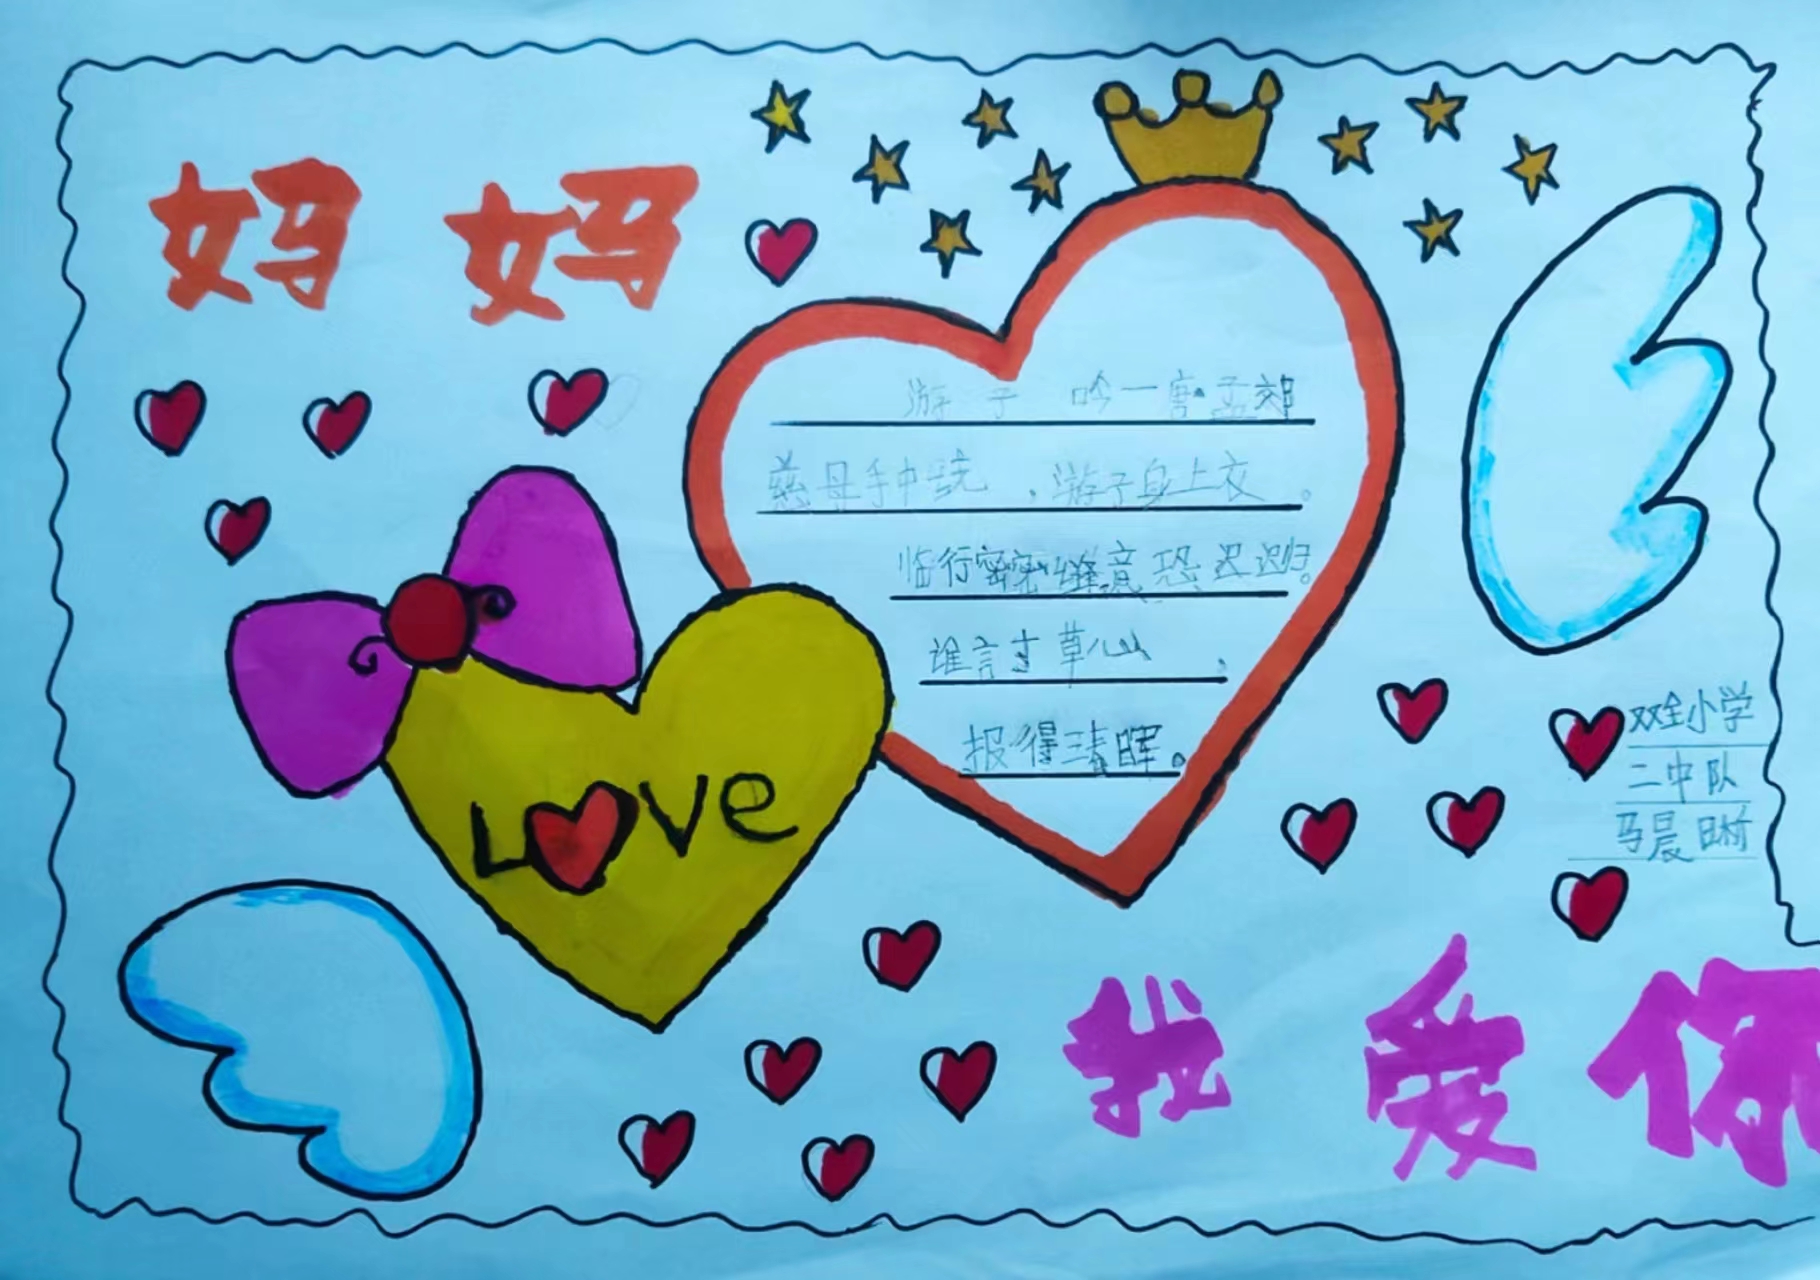 妈妈
游子吟一唐·孟郊
慈母手中线,游子身上衣。
临行密密缝意恐迟迟归。
谁言寸草心,
报得三春晖。
Love
双全小学
二中队
马晨昕
我爱你